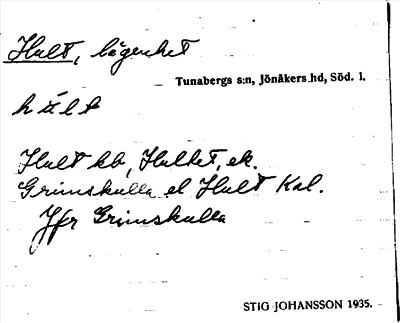 Hult, lägenhet
Tunabergs s:n, Jönåkers hd, Söd. l.
Hult kb, Hulket, ek.
Grimskulla el Hult Kal.
Jfr Grimskulla
STIG JOHANSSON 1935.